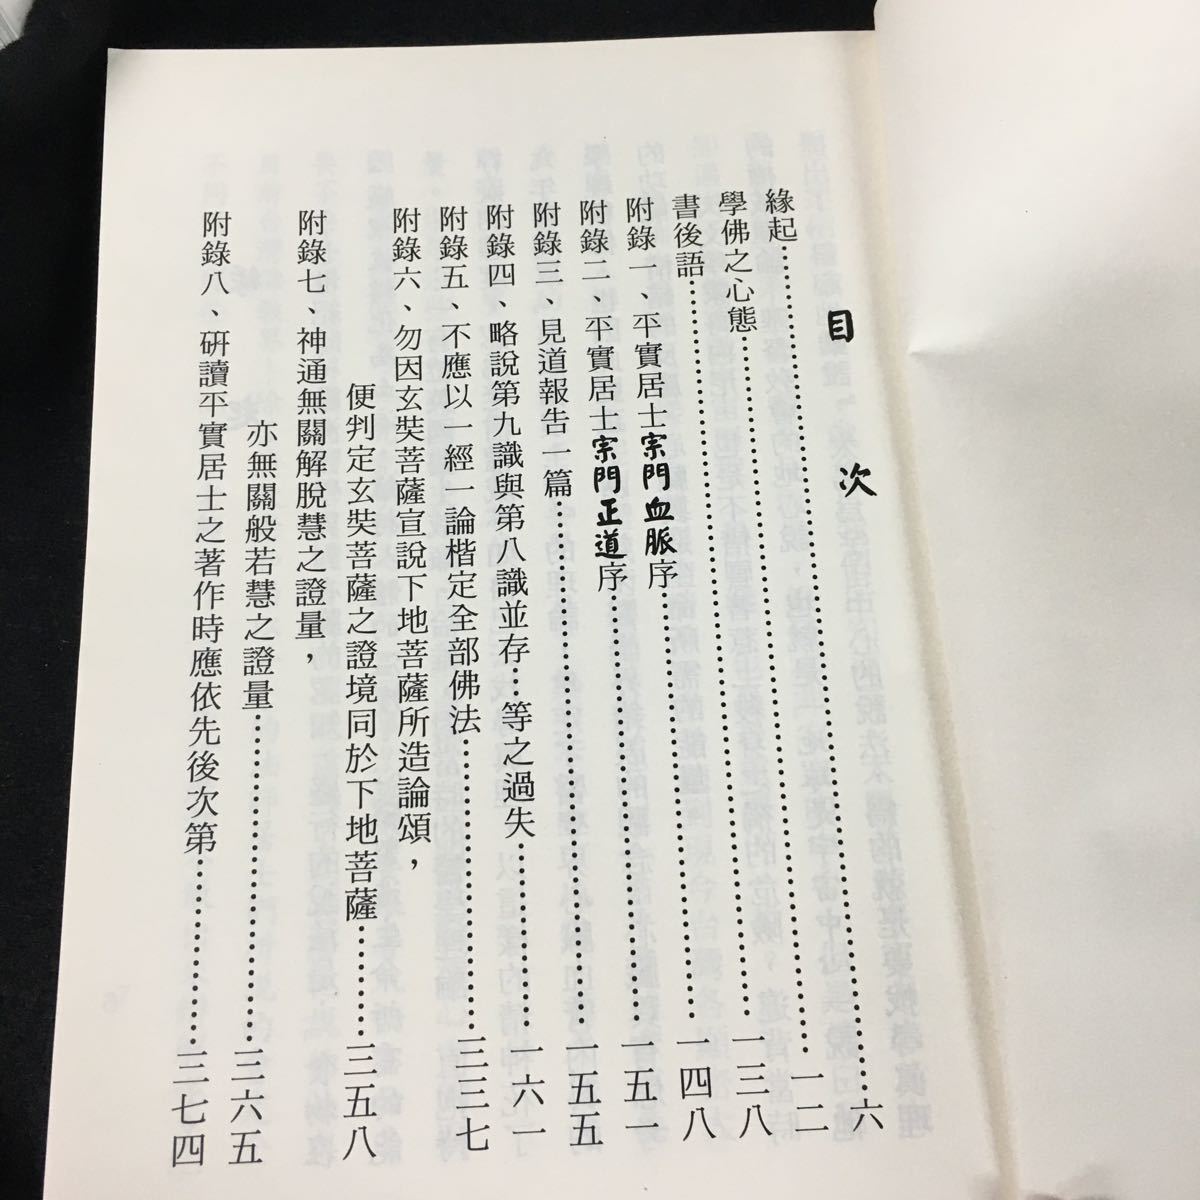 目次
緣起……………………六
學佛之心態……………………一二
書後語……………………一三八
附錄一、平實居士宗門血脈序……………………一四八
附錄二、平實居士宗門正道序……………………一五一
附錄三、見道報告一篇……………………一五五
附錄四、略說第九識與第八識並存…等之過失……………一六一
附錄五、不應以一經一論楷定全部佛法………………三三七
附錄六、勿因玄奘菩薩宣說下地菩薩所造論頌，
便判定玄奘菩薩之證境同於下地菩薩…………三五八
附錄七、神通無關解脫慧之證量，
亦無關般若慧之證量……………………三六五
附錄八、研讀平實居士之著作時應依先後次第……………三七四